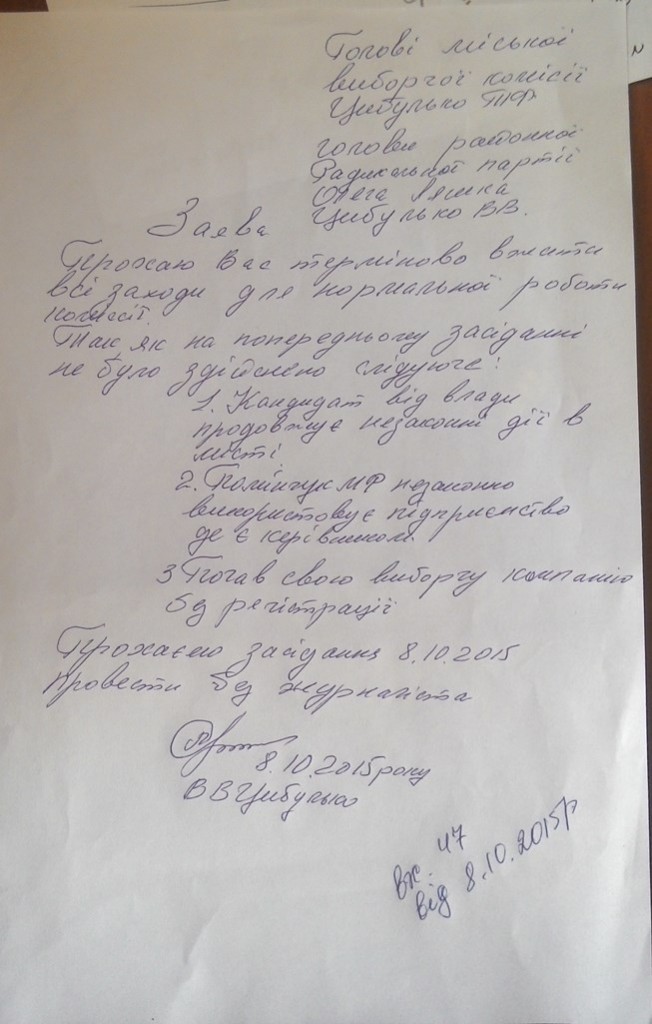 Голові міської
виборчої комісії
Цибулько ТФ
голови районної
Радикальної партії
Олега Ляшка
Цибулько ВВ.
Заява
Прохаю Вас терміново вжити
всі заходи для нормальної роботи
комісії.
Так як на попередньому засіданні
не було здійснено слідуюче:
1. Кандидат від влади
продовжує незаконні дії в
місті.
2. Полінчук МФ незаконно
використовує підприємство
де є керівником.
3 Почав свою виборчу компанію
без регістрації
Прохаємо засідання 8.10.2015
провести без журналіста
8.10.2015року
ВВЦибулько
вх. 47
від 8.10.2015р